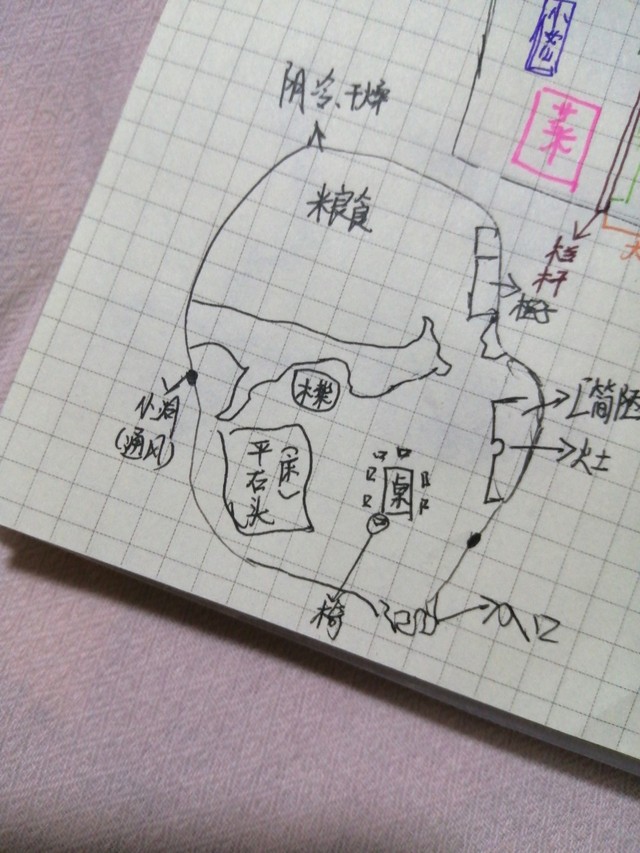 小
菜
阴冷、干燥
粮食
栏
杆
柜子
小洞
(通风)
平
石
头
(床)
桌
椅
简陋
灶
入口